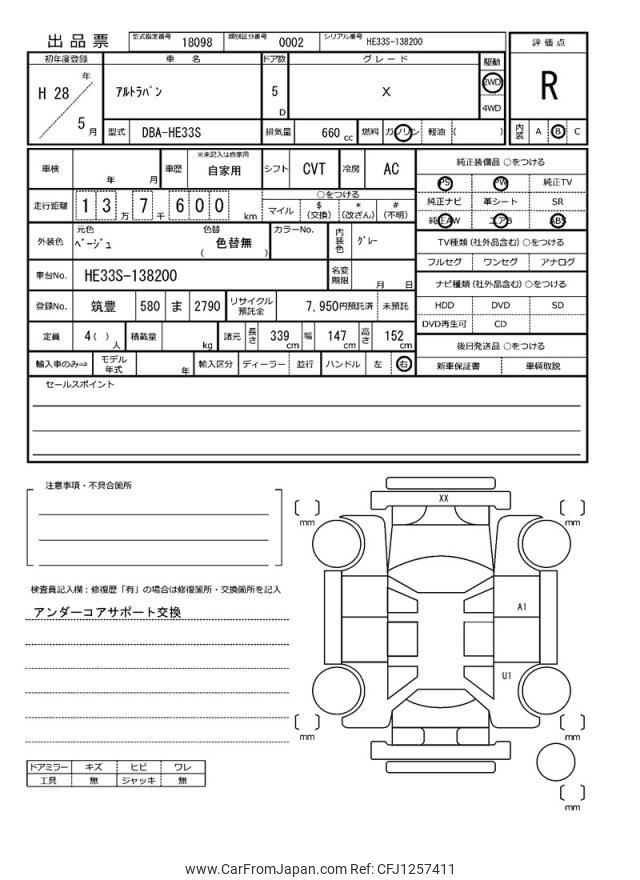 出品票 型式指定番号 18098 類別区分番号 0002 シリアル番号 HE33S-138200
評価点
R
内装 A B C
初年度登録 車名 ドア数 グレード 駆動
H 28 年 5 月 アルトラパン 5 D X 2WD 4WD
型式 DBA-HE33S 排気量 660 cc 燃料 ガソリン 軽油 ( )
車検 年 月 車歴 ※未記入は自家用 自家用 シフト CVT 冷房 AC
走行距離 1 3 万 7 千 6 0 0 km ○をつける
マイル $(交換) *(改ざん) #(不明)
外装色 元色 ベージュ 色替 ( 色替無 ) カラーNo. 内装色 グレー
車台No. HE33S-138200 名変期限 月 日
登録No. 筑豊 580 ま 2790 リサイクル預託金 7,950円預託済 未預託
定員 4( ) 人 積載量 kg 諸元 長さ 339 cm 幅 147 cm 高さ 152 cm
輸入車のみ⇒ モデル年式 年 輸入区分 ディーラー 並行 ハンドル 左 右
純正装備品 ○をつける
PS PW 純正TV
純正ナビ 革シート SR
純正AW エアB ABS
TV種類 (社外品含む) ○をつける
フルセグ ワンセグ アナログ
ナビ種類 (社外品含む) ○をつける
HDD DVD SD
DVD再生可 CD
後日発送品 ○をつける
新車保証書 車輌取説
セールスポイント
注意事項・不具合箇所
検査員記入欄：修復歴「有」の場合は修復箇所・交換箇所を記入
アンダーコアサポート交換
ドアミラー キズ ヒビ ワレ
工具 無 ジャッキ 無
XX
mm
mm
A1
U1
mm
mm
mm
www.CarFromJapan.com Ref: CFJ1257411